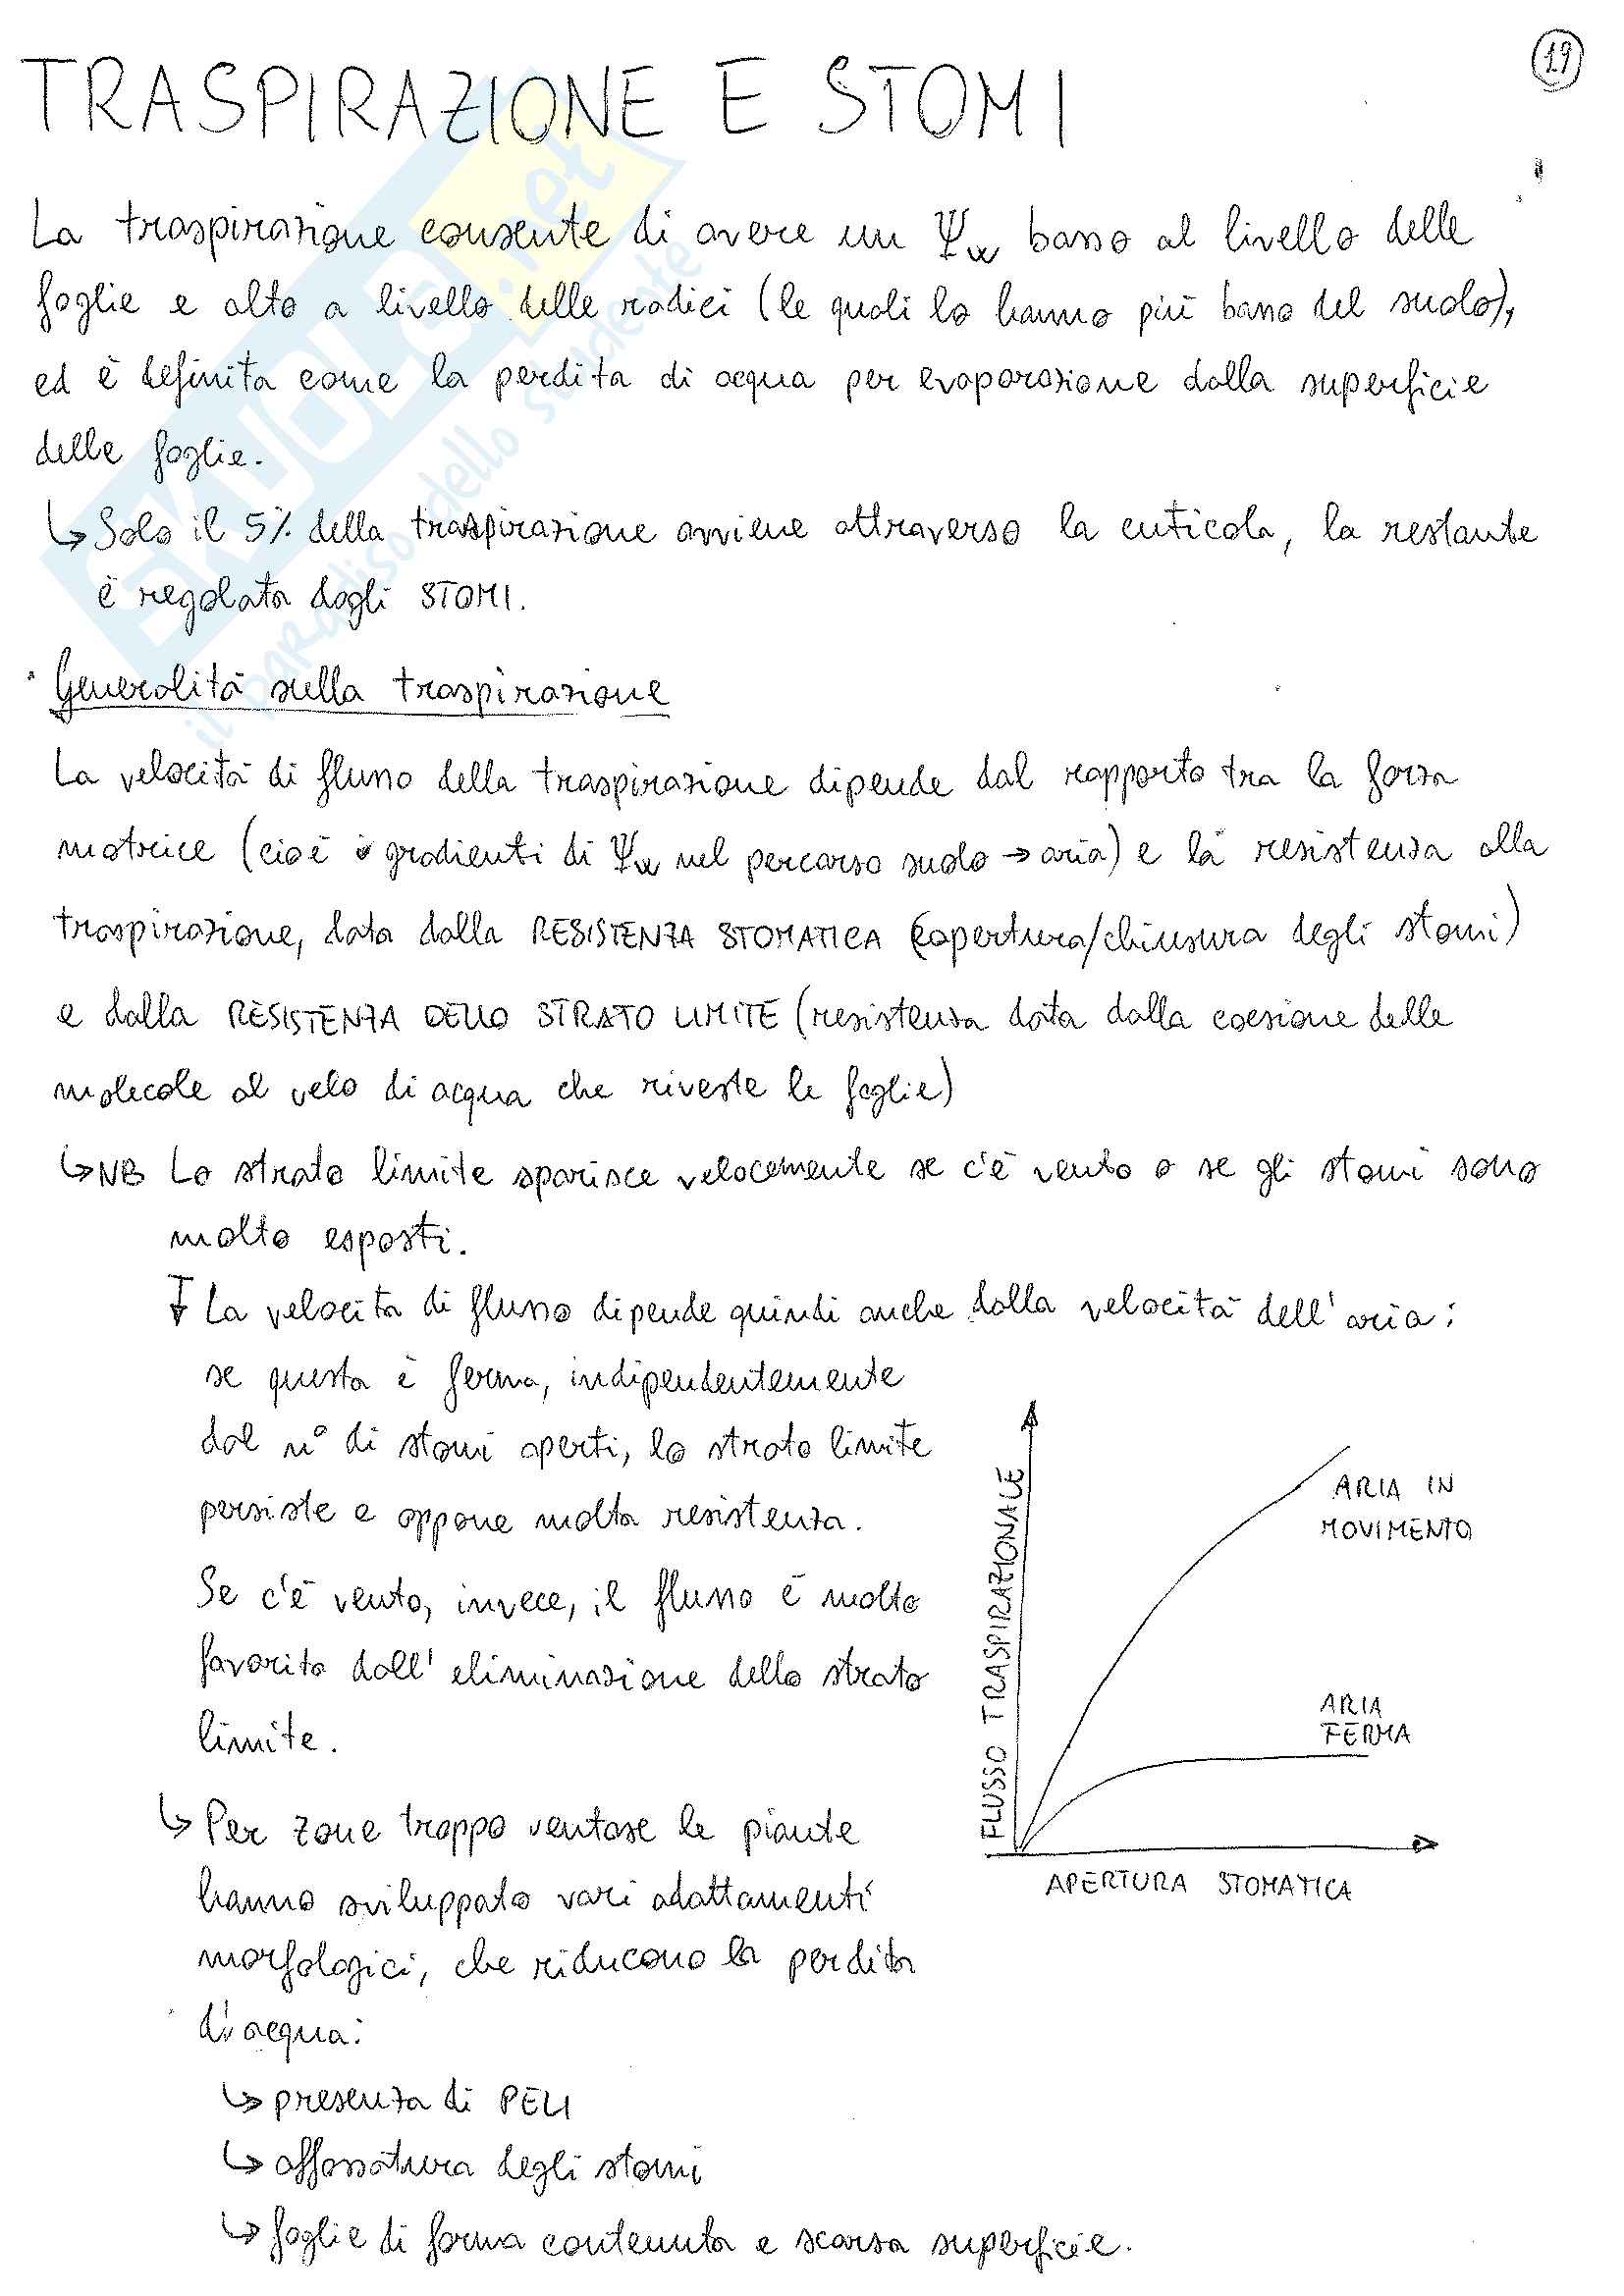 19
TRASPIRAZIONE E STOMI
La traspirazione consente di avere un Ψw basso al livello delle
foglie e alto a livello delle radici (le quali lo hanno più basso del suolo),
ed è definita come la perdita di acqua per evaporazione dalla superficie
delle foglie.
↳ Solo il 5% della traspirazione avviene attraverso la cuticola, la restante
è regolata dagli STOMI.
· Generalità sulla traspirazione
La velocità di flusso della traspirazione dipende dal rapporto tra la forza
motrice (cioè i gradienti di Ψw nel percorso suolo → aria) e la resistenza alla
traspirazione, data dalla RESISTENZA STOMATICA (apertura/chiusura degli stomi)
e dalla RESISTENZA DELLO STRATO LIMITE (resistenza data dalla coesione delle
molecole al velo di acqua che riveste le foglie)
↳ NB Lo strato limite sparisce velocemente se c'è vento o se gli stomi sono
molto esposti.
↧ La velocità di flusso dipende quindi anche dalla velocità dell'aria:
se questa è ferma, indipendentemente
dal n° di stomi aperti, lo strato limite
persiste e oppone molta resistenza.
Se c'è vento, invece, il flusso è molto
favorito dall'eliminazione dello strato
limite.
↳ Per zone troppo ventose le piante
hanno sviluppato vari adattamenti
morfologici, che riducono la perdita
di acqua:
↳ presenza di PELI
↳ affossatura degli stomi
↳ foglie di forma contenuta e scarsa superficie.
FLUSSO TRASPIRAZIONALE
ARIA IN
MOVIMENTO
ARIA
FERMA
APERTURA STOMATICA
SKUOLA.net
il paradiso dello studente